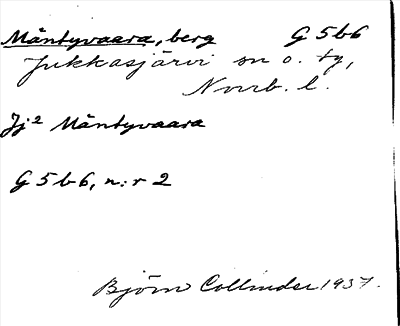 Mäntyvaara, berg G5b6
Jukkasjärvi sn o. tg,
Norrb. l.
Jj² Mäntyvaara
G5b6, n:r 2
Björn Collinder 1937.